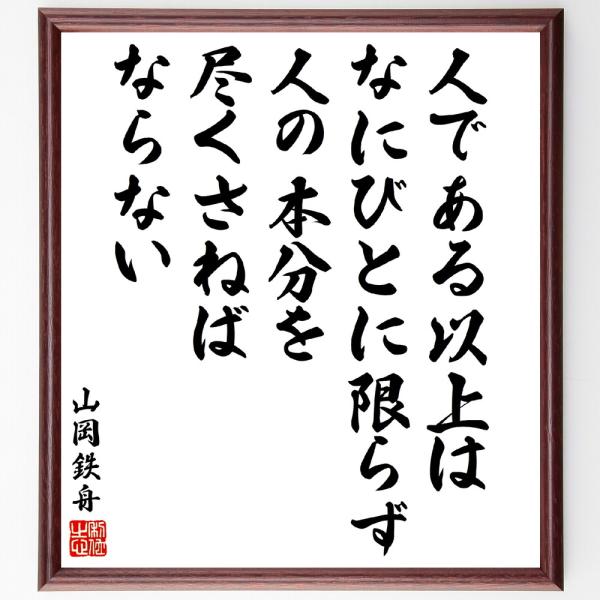 人である以上は
なにびとに限らず
人の本分を
尽くさねば
ならない
山岡鉄舟